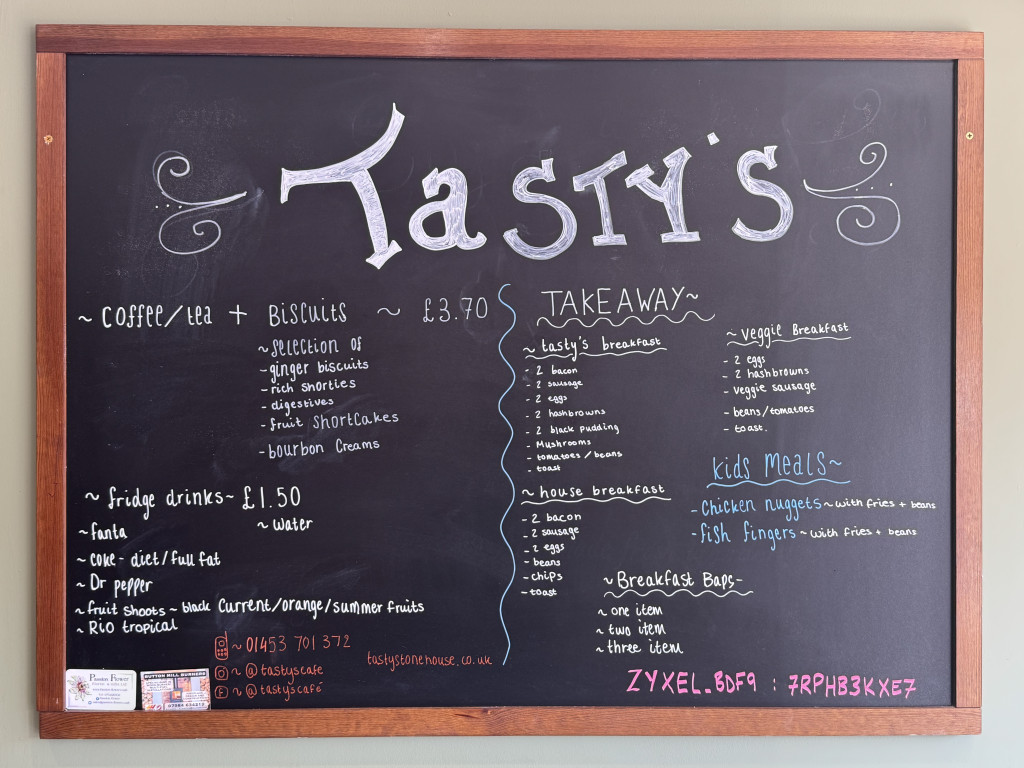 Tasty's
~ Coffee/tea + Biscuits ~ £3.70
~ Selection of
- ginger biscuits
- rich shorties
- digestives
- fruit ShortCakes
- bourbon Creams
~ fridge drinks ~ £1.50
~ fanta
~ water
~ coke - diet/full fat
~ Dr pepper
~ fruit shoots ~ black Current/orange/summer fruits
~ Rio tropical
~ 01453 701 372
~ @tastyscafe
~ @tastyscafe
tastystonehouse.co.uk
TAKEAWAY~
~ tasty's breakfast
- 2 bacon
- 2 sausage
- 2 eggs
- 2 hashbrowns
- 2 black pudding
- Mushrooms
- tomatoes / beans
- toast
~ house breakfast
- 2 bacon
- 2 sausage
- 2 eggs
- beans
- chips
- toast
~ veggie Breakfast
- 2 eggs
- 2 hashbrowns
- veggie sausage
- beans/tomatoes
- toast.
kids Meals~
- Chicken nuggets ~ with fries + beans
- fish fingers ~ with fries + beans
~ Breakfast Baps~
~ one item
~ two item
~ three item
ZYXEL_BDF9 : 7RPHB3KXE7
Passion Flower
BUTTON MILL BURNERS